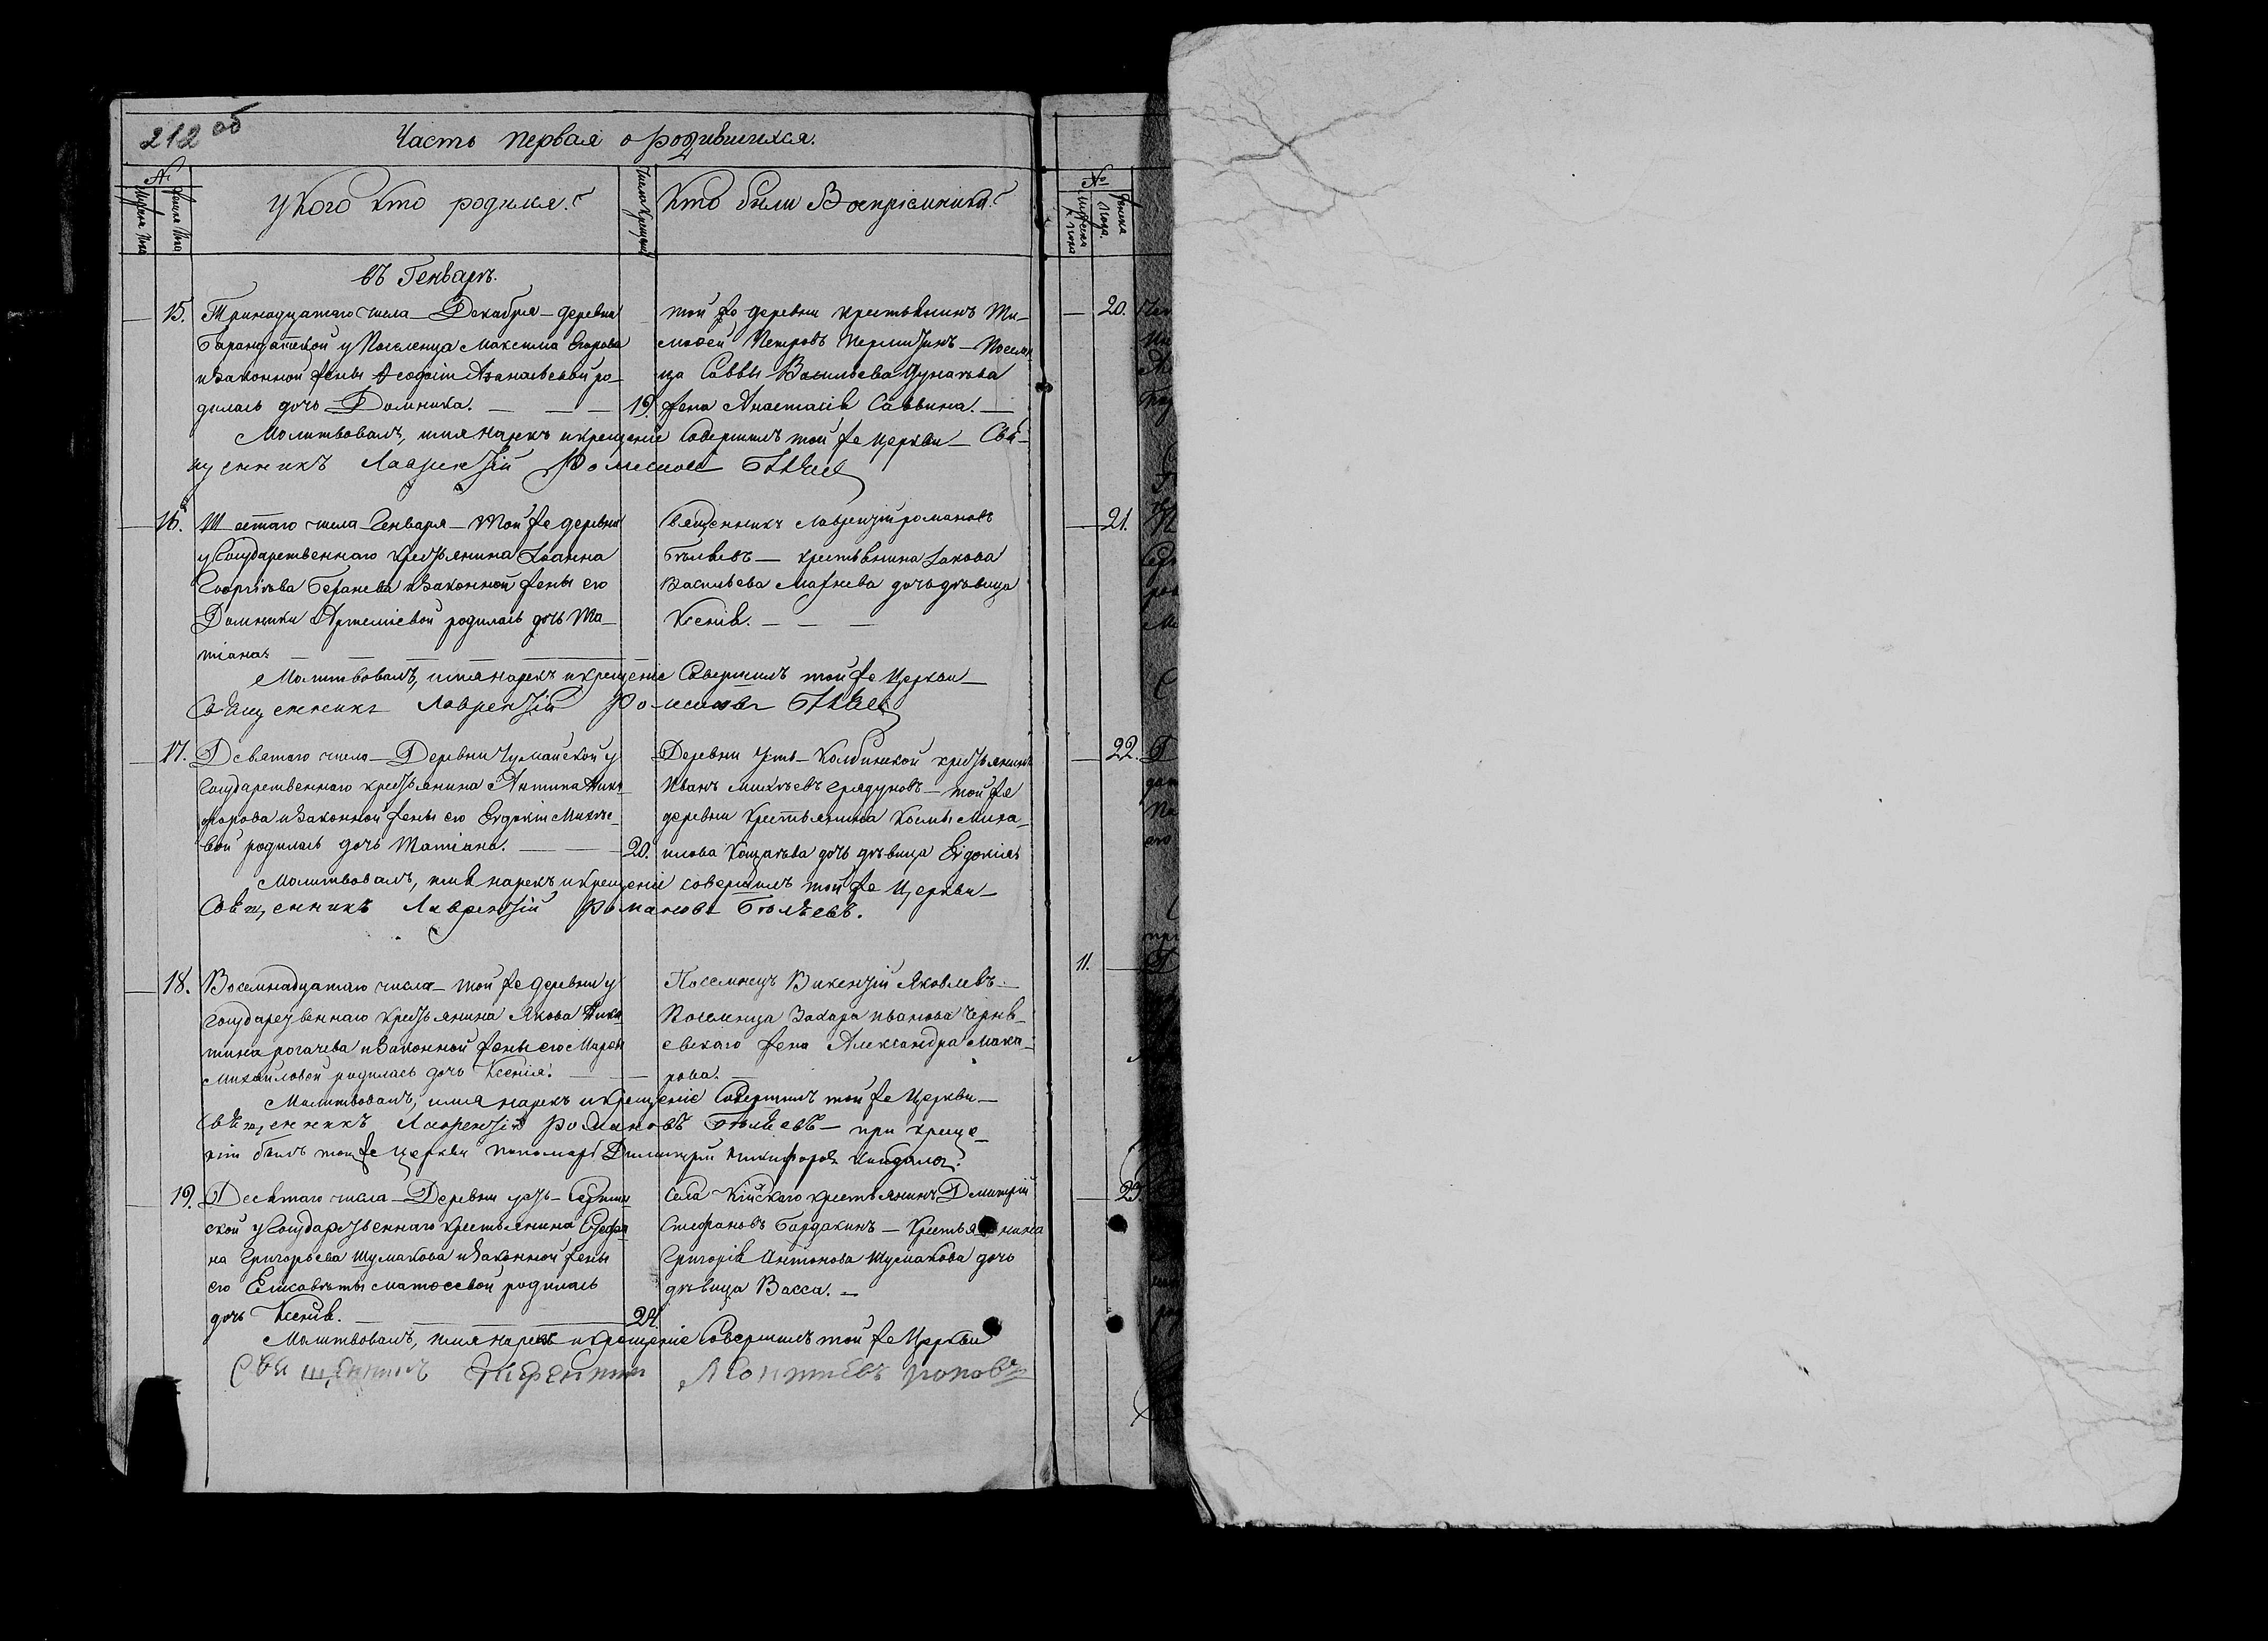 212 об
Часть первая о родившихся.
№
Мужеска пола
Женска пола
У кого кто родился?
Число крещенія
Кто были Воспріемники?
въ Генварѣ.
15. Тринадцатаго числа Декабря – деревни
у Поселенца Максима Егорова
и Законной жены Феодосіи Аѳанасьевой ро–
дилась дочь Домника. — — — 19.
той же деревни крестьянинъ Ти–
моѳей Петровъ – Поселен
ца Саввы Васильева
жена Анастасія Саввина. —
Молитвовалъ, имя нарекъ и крещеніе Совершилъ той же Церкви – Свя–
щенникъ Лаврентій Романовъ Бѣляевъ
16. Шестаго числа Генваря – Той же деревни
у Государственнаго крестьянина Іоанна
Георгіева и Законной жены его
Домники Артеміевой родилась дочь Та–
тіана.
Священникъ Лаврентій романовъ
Бѣляевъ — крестьянина Іакова
Васильева дочь дѣвица
Ксенія. — — —
Молитвовалъ, имя нарекъ и крещеніе Совершилъ той же Церкви –
Священникъ Лаврентій Романовъ Бѣляевъ
17. Девятаго числа – Деревни Чумайской у
Государственнаго крестьянина Антипа Ники–
форова и Законной жены его Евдокіи Михѣе–
вой родилась дочь Татіана. — — — 20.
Деревни Усть–Колбинской крестьянинъ
Иванъ Михѣевъ Грядуновъ – той же
деревни Крестьянина Космы Миха–
илова дочь дѣвица Евдокія
Молитвовалъ, имя нарекъ и крещеніе совершилъ той же Церкви –
Священникъ Лаврентій Романовъ Бѣляевъ.
18. Восемнадцатаго числа – той же деревни у
Государственнаго крестьянина Якова Ники–
тина рогачева и Законной жены его Марѳы
Михайловой родилась дочь Ксенія. — —
Поселенецъ Викентій Яковлевъ –
Поселенца Захара Иванова Черня–
евскаго жена Александра Мака–
рова. —
Молитвовалъ, имя нарекъ и крещеніе Совершилъ той же Церкви –
Священникъ Лаврентій Романовъ Бѣляевъ – при креще–
ніи былъ той же церкви пономарь Димитрій Никифоровъ
19. Десятаго числа – Деревни усть–Серти–
ской у Государственнаго крестьянина Стефа
на Григорьева Шумакова и Законной жены
его Елисаветы Матѳеевой родилась
дочь Ксенія. — 24.
Села Кійскаго крестьянинъ Дмитрій
Стефановъ Бардакинъ – Крестьянина
Григорія Антонова Шумакова дочь
дѣвица Васса. —
Молитвовалъ, имя нарекъ и крещеніе Совершилъ той же Церкви
Священникъ Терентій Леонтіевъ Поповъ
№
Мужеска пола
Женска пола.
20.
21.
22.
11.
23.